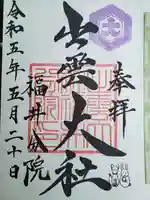 奉拝
出雲大社
福井分院
令和五年五月二十日